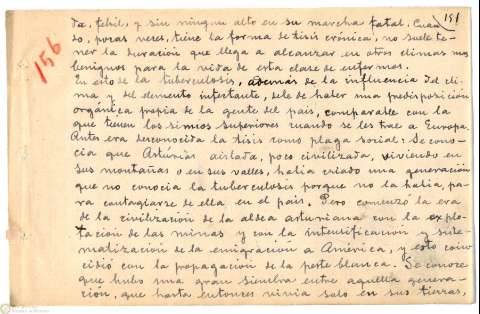 151
156
da, febril, y sin ningun alto en su marcha fatal. Cuan
do, pocas veces, tiene la forma de tisis crónica, no suele te-
ner la duracion que llega a alcanzar en otros climas mas
benignos para la vida de esta clase de enfermos.
En esto de la tuberculosis, además de la influencia del cli-
ma y del elemento infectante, debe de haber una predisposición
orgánica propia de la gente del pais, comparable con la
que tienen los simios superiores cuando se les trae a Europa.
Antes era desconocida la tisis como plaga social: Se cono-
cia que Astúrias aislada, poco civilizada, viviendo en
sus montañas o en sus valles, habia criado una generación
que no conocia la tuberculosis porque no la habia, pa-
ra contagiarse de ella en el pais. Pero comenzó la era
de la civilización de la aldea asturiana con la explo-
tación de las minas y con la intensificacion y siste-
matización de la emigración a América, y esto coin-
cidió con la propagacion de la peste blanca. Se conoce
que hubo una gran siembra entre aquella genera-
ción, que hasta entonces vivia solo en sus tierras,